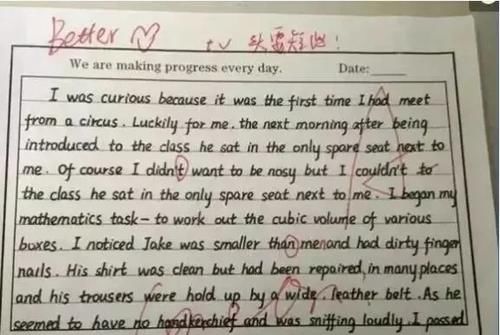 Better
tv 头要短些!
We are making progress every day. Date:
I was curious because it was the first time I had meet
from a circus. Luckily for me. the next morning after being
introduced to the class he sat in the only spare seat next to
me. Of course I didn't want to be nosy but I couldn't to
the class he sat in the only spare seat next to me. I began my
mathematics task - to work out the cubic volume of various
boxes. I noticed Jake was smaller than men and had dirty finger
nails. His shirt was clean but had been repaired, in many places
and his trousers were hold up by a wide, leather belt. As he
seemed to have no handkerchief and was sniffing loudly. I passed